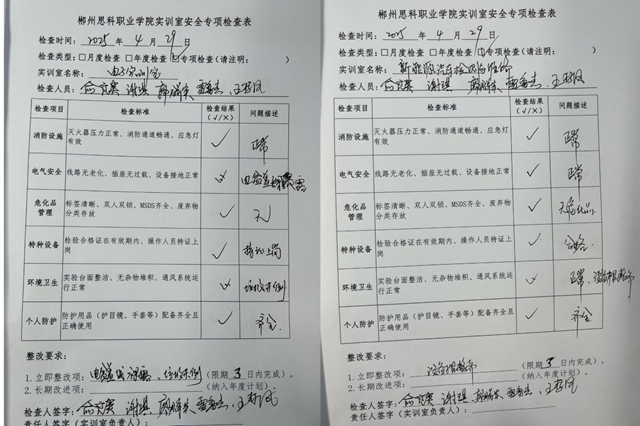 郴州思科职业学院实训室安全专项检查表
检查时间: 2025 年 4 月 29 日
检查类型: □月度检查 □年度检查 ☑专项检查(请注明: )
实训室名称: 电子实训室
检查人员: 谢琪
检查项目 检查标准 检查结果(√/×) 问题描述
消防设施 灭火器压力正常、消防通道畅通、应急灯有效 √ 正常
电气安全 线路无老化、插座无过载、设备接地正常
危化品管理 标签清晰、双人双锁、MSDS齐全、废弃物分类存放 √ 无
特种设备 检验合格证在有效期内、操作人员持证上岗 √ 持证上岗
环境卫生 实验台面整洁、无杂物堆积、通风系统运行正常
个人防护 防护用品(护目镜、手套等)配备齐全且正确使用 √ 齐全
整改要求:
1. 立即整改项: (限期 3 日内完成)。
2. 长期改进项: (纳入年度计划)。
检查人签字: 谢琪
责任人签字(实训室负责人):
郴州思科职业学院实训室安全专项检查表
检查时间: 2025 年 4 月 29 日
检查类型: □月度检查 □年度检查 ☑专项检查(请注明: )
实训室名称: 新能源汽车
检查人员: 谢琪
检查项目 检查标准 检查结果(√/×) 问题描述
消防设施 灭火器压力正常、消防通道畅通、应急灯有效 √ 正常
电气安全 线路无老化、插座无过载、设备接地正常 √ 正常
危化品管理 标签清晰、双人双锁、MSDS齐全、废弃物分类存放 √ 无危化品
特种设备 检验合格证在有效期内、操作人员持证上岗 √ 合格
环境卫生 实验台面整洁、无杂物堆积、通风系统运行正常 √ 正常
个人防护 防护用品(护目镜、手套等)配备齐全且正确使用 √ 齐全
整改要求:
1. 立即整改项: (限期 日内完成)。
2. 长期改进项: (纳入年度计划)。
检查人签字: 谢琪
责任人签字(实训室负责人):